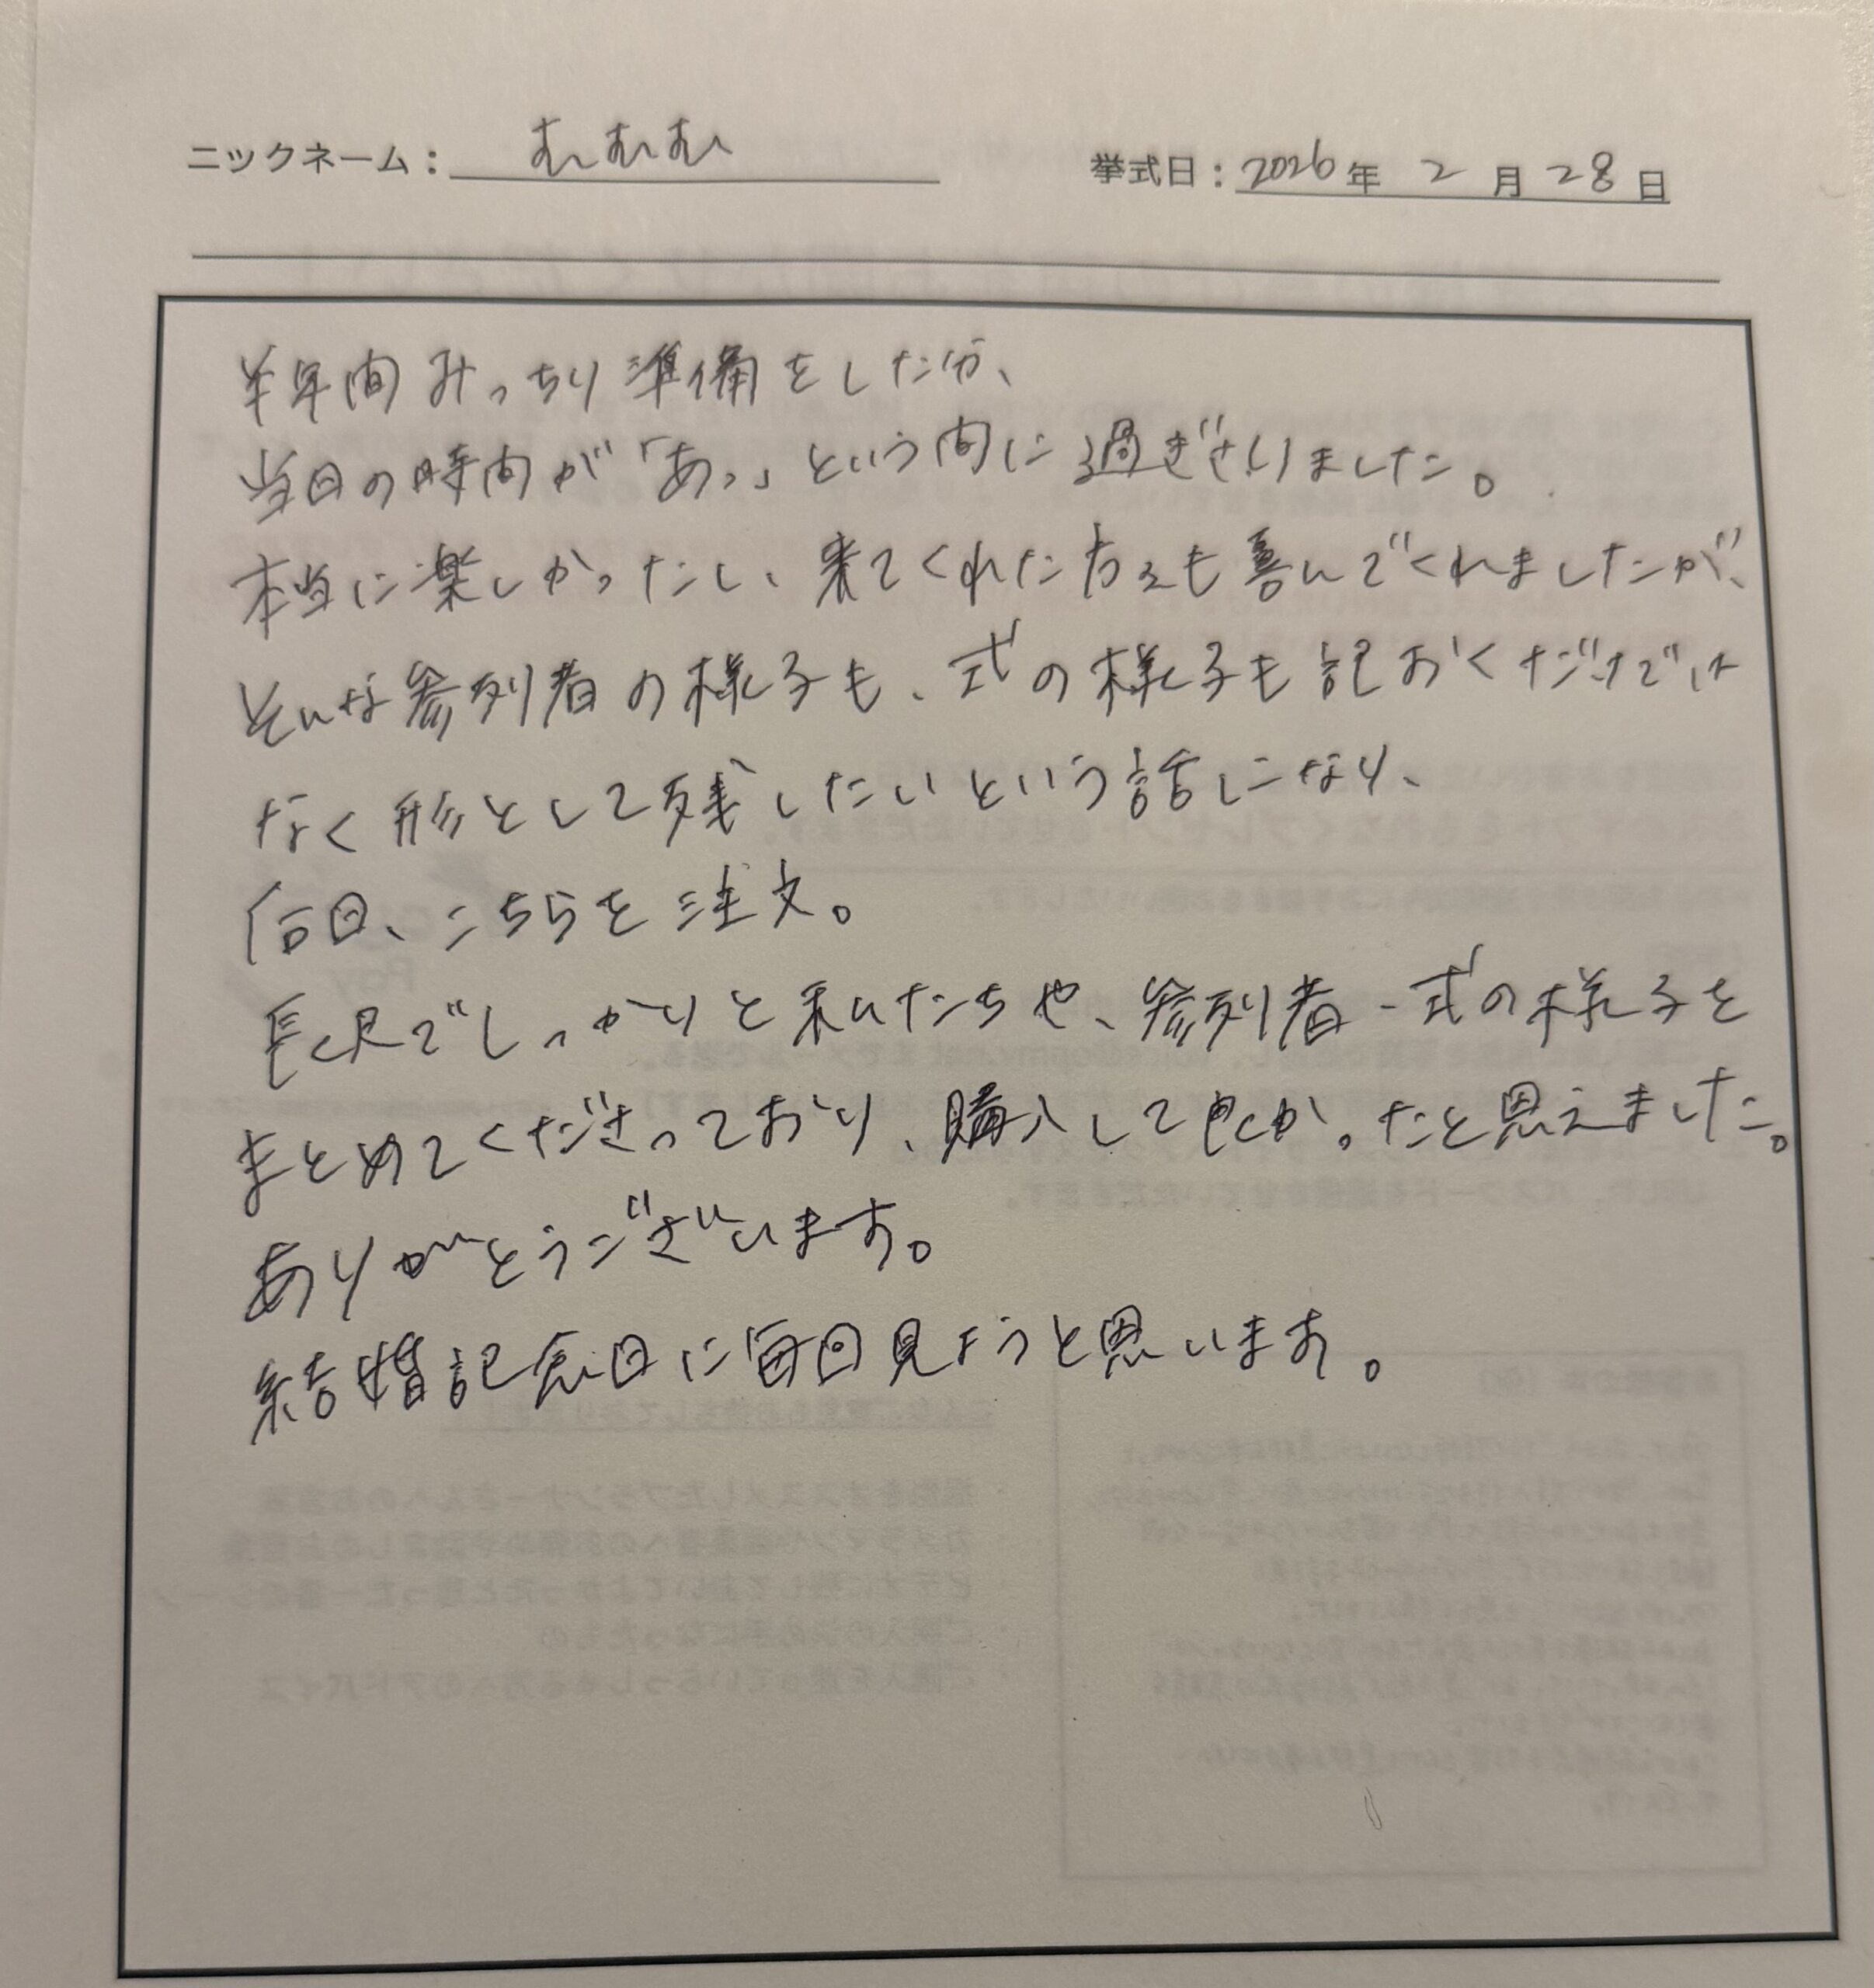 ニックネーム：むむむ 挙式日：2026年 2月 28日
半年間みっちり準備をした分、
当日の時間が「あっ」という間に過ぎさりました。
本当に楽しかったし、来てくれた方々も喜んでくれましたが、
そんな参列者の様子も、式の様子も記おくだけでは
なく形として残したいという話しになり、
後日、こちらを注文。
長尺でしっかりと私たちや、参列者・式の様子を
まとめてくださっており、購入して良かったと思えました。
ありがとうございます。
結婚記念日に毎回見ようと思います。